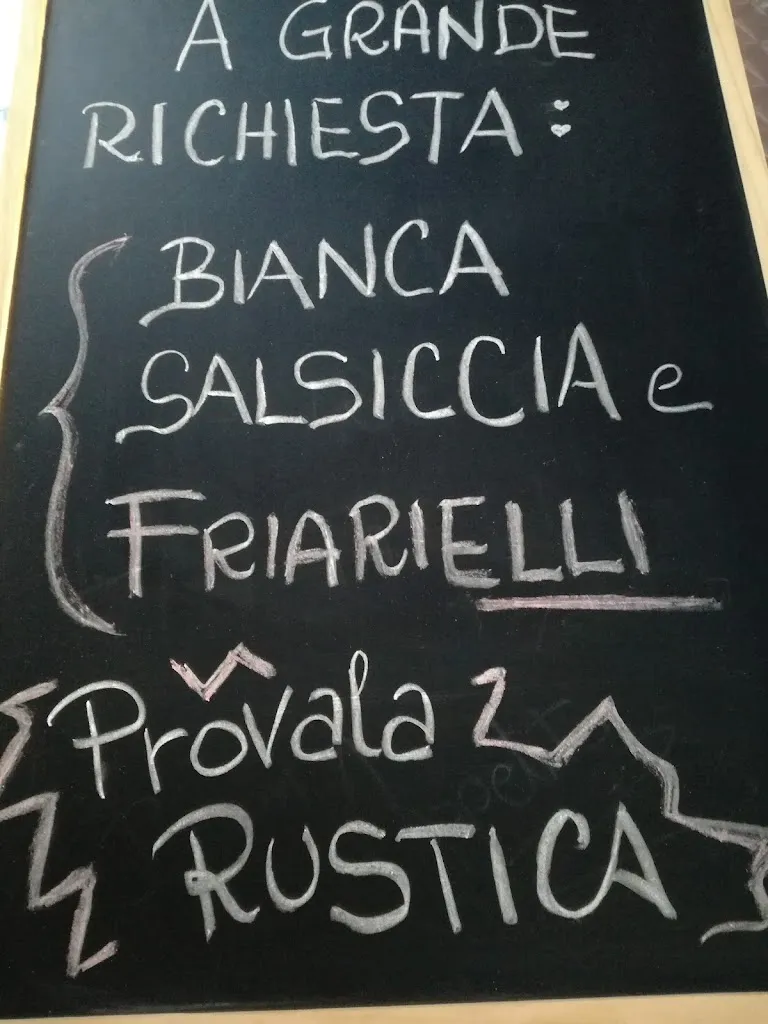 A GRANDE
RICHIESTA:
BIANCA
SALSICCIA e
FRIARIELLI
Provala
RUSTICA